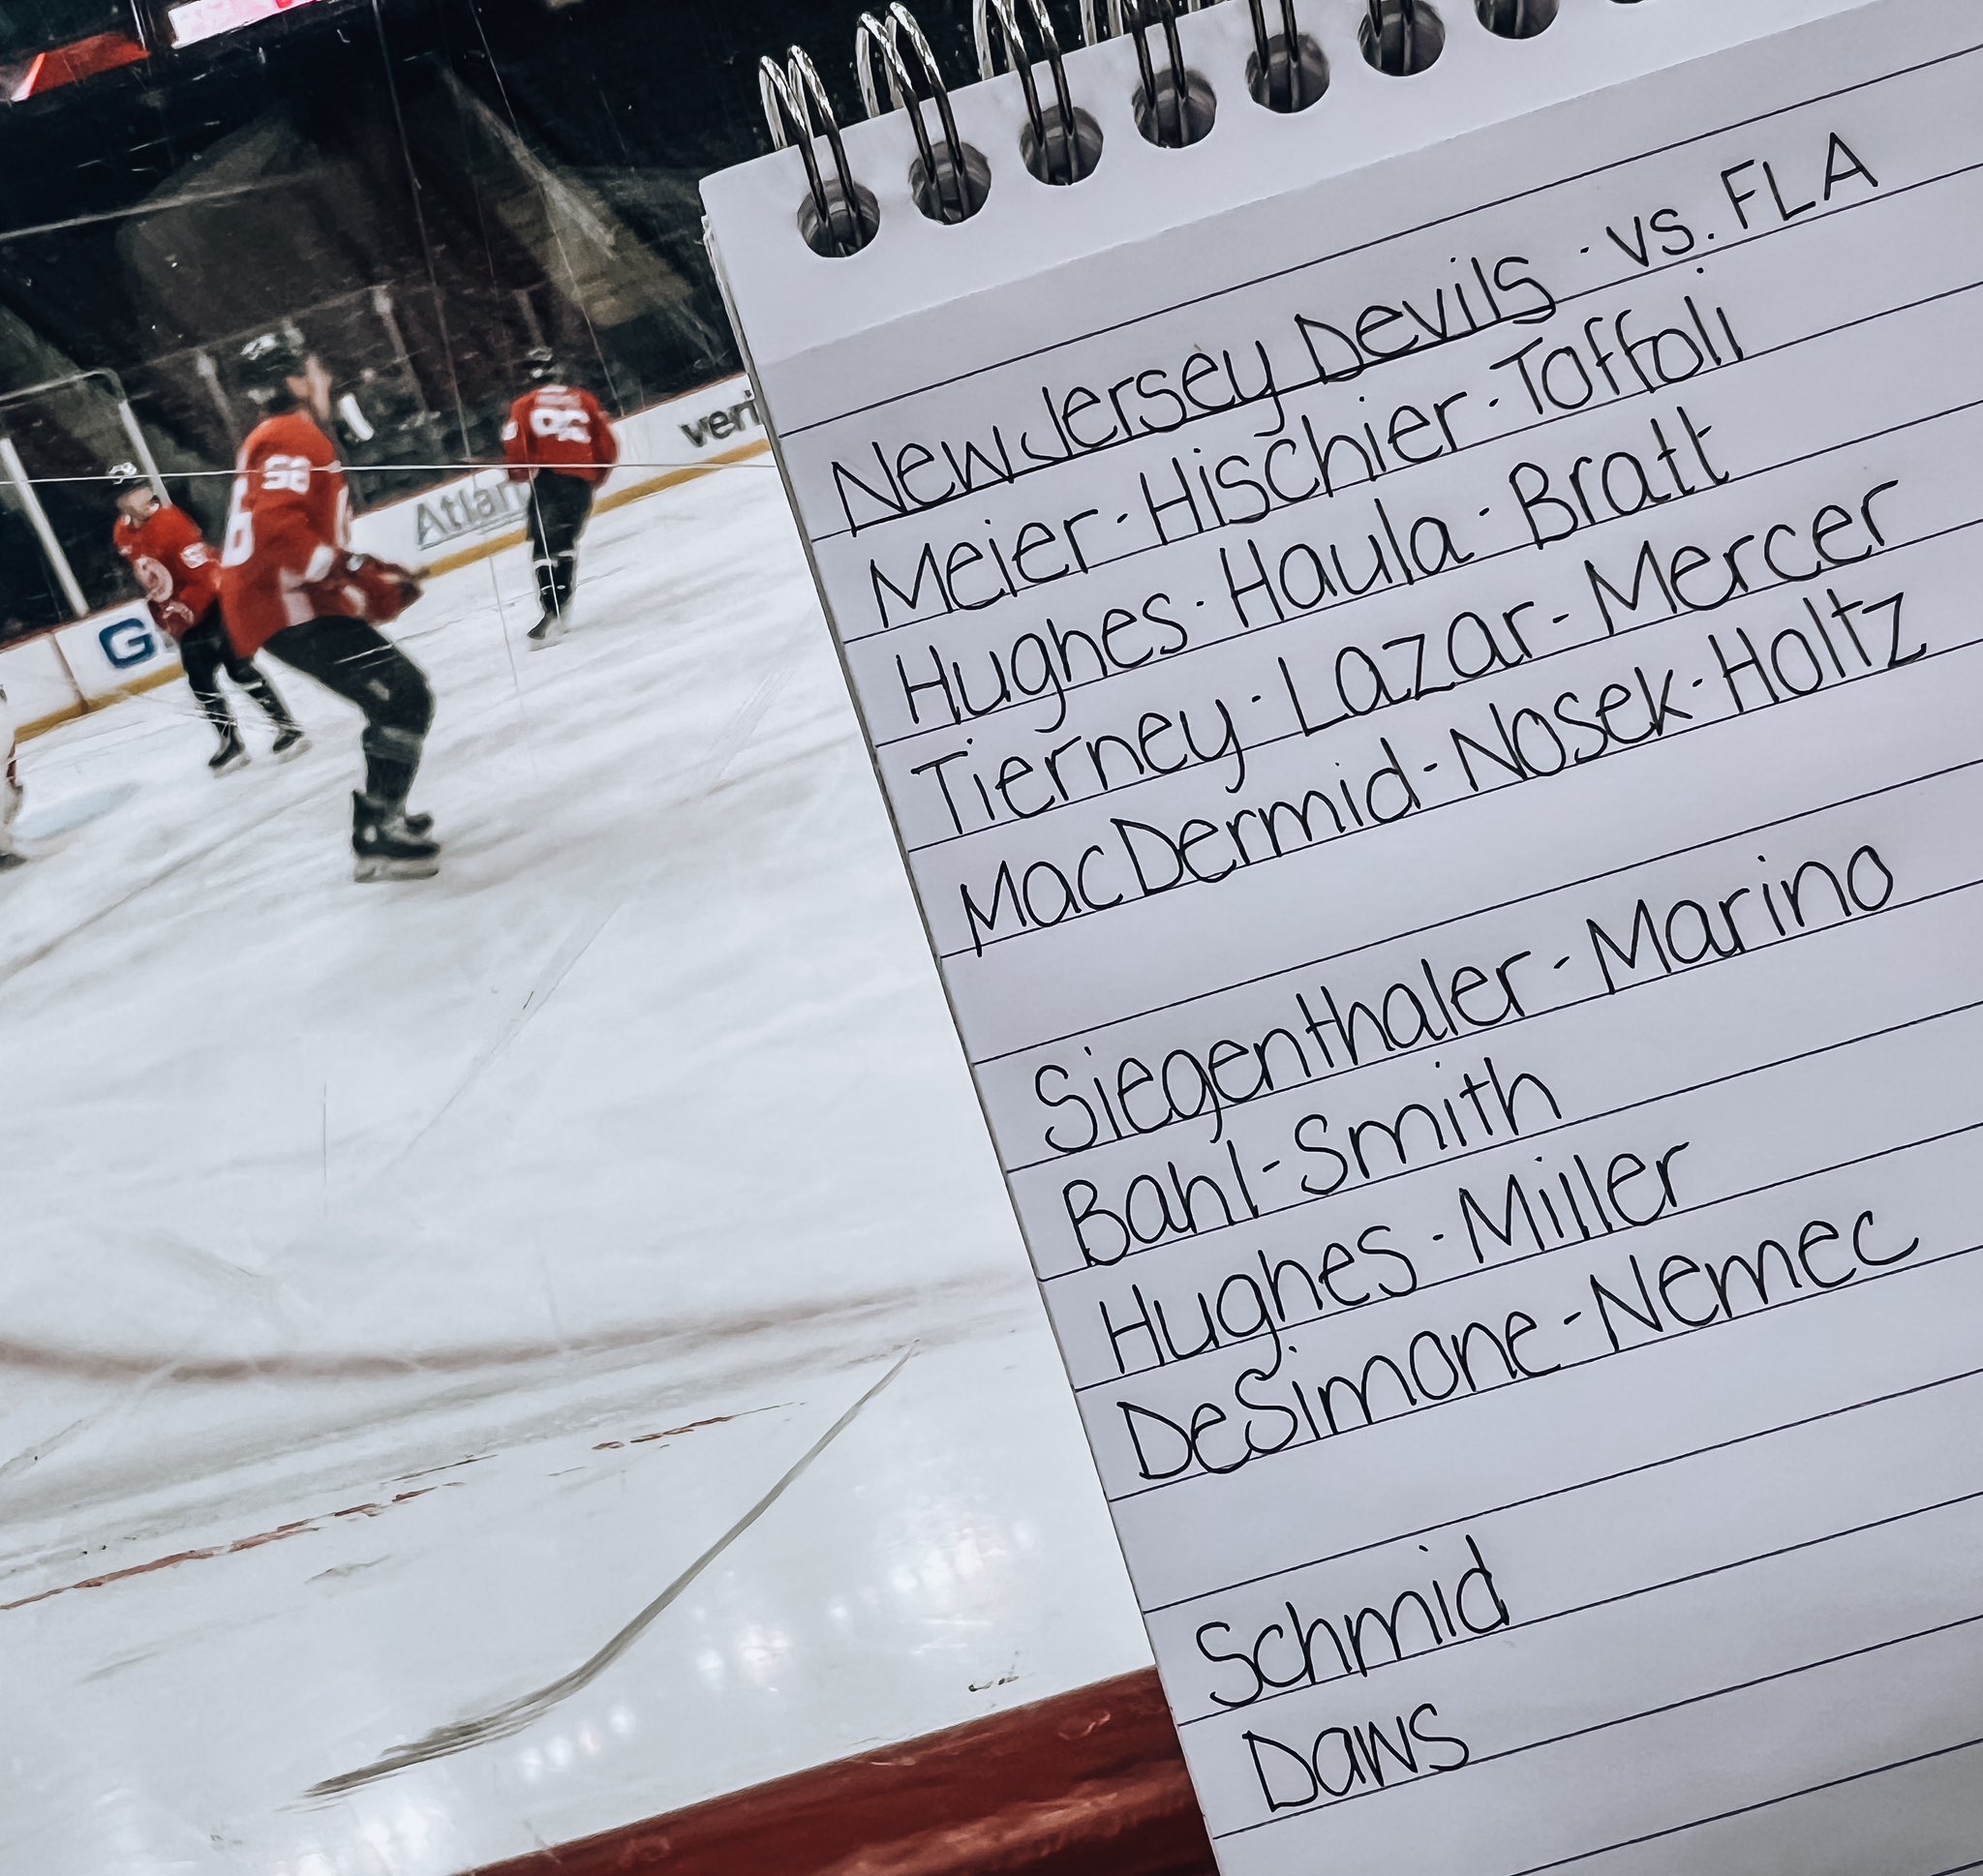 New Jersey Devils · vs. FLA
Meier - Hischier - Toffoli
Hughes - Haula - Bratt
Tierney - Lazar - Mercer
MacDermid - Nosek - Holtz
Siegenthaler - Marino
Bahl - Smith
Hughes - Miller
DeSimone - Nemec
Schmid
Daws
veri
Atlan
G